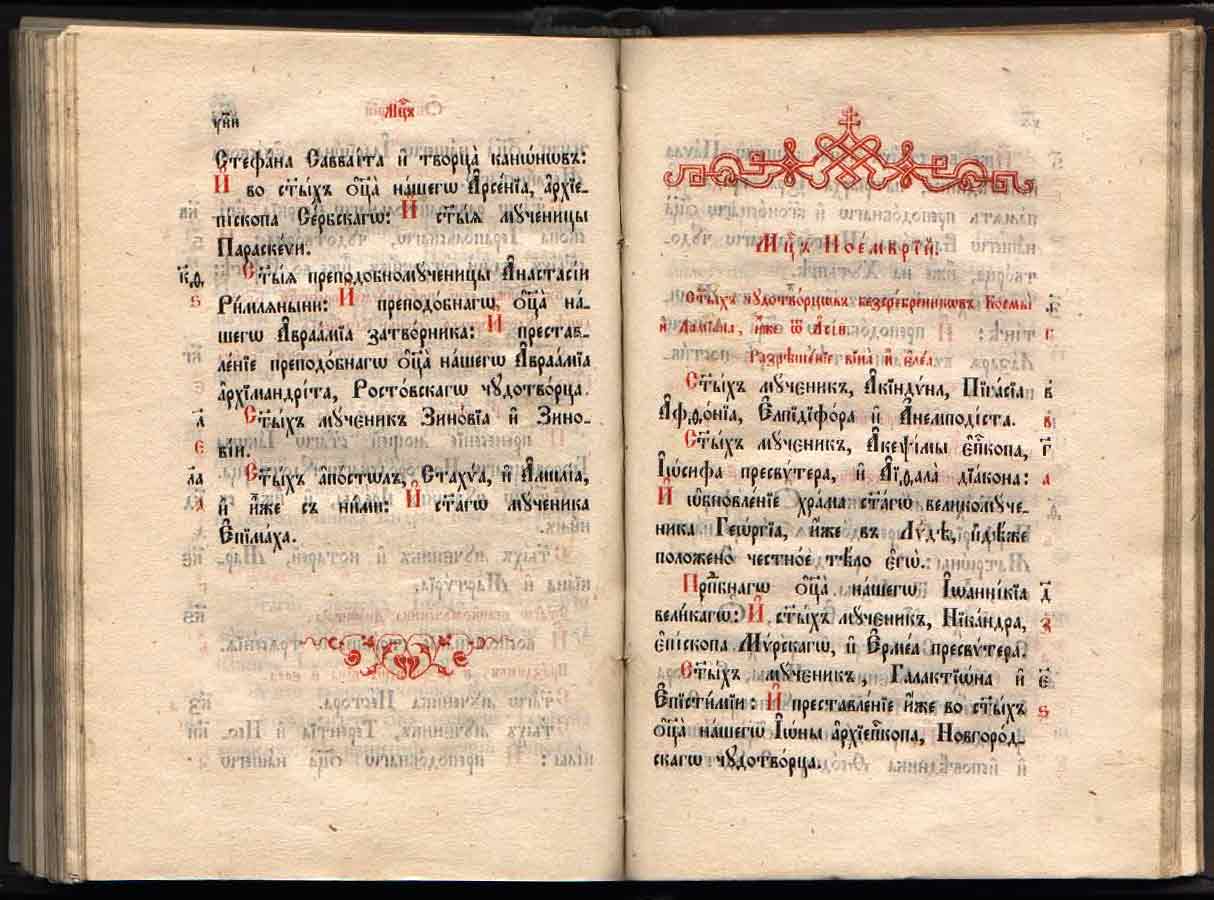 Мцⷭ҇ъ
Стефа́на Савваи́та и҆ творца̀ кано́нѡвъ:
И҆ во ст҃ы́хъ ѻ҆ц҃а̀ на́шегѡ А҆рсе́нїа, а҆рхїе-
пи́скопа Се́рбскагѡ: И҆ ст҃ы́ѧ мꙋ́ченицы
Параске́ѵи.
к҃ѳ Ст҃ы́ѧ преподобномꙋ́ченицы А҆настасі́и
ѕ Ри́млѧныни: И҆ преподо́бнагѡ, ѻ҆ц҃а̀ на́-
шегѡ А҆враа́мїа затво́рника: И҆ преста́в-
ле́нїе преподо́бнагѡ ѻ҆ц҃а̀ на́шегѡ А҆враа́мїа
а҆рхїмандрі́та, Росто́вскагѡ чꙋдотво́рца.
л҃ Ст҃ы́хъ мꙋ́ченик Зино́вїа и҆ Зино́-
є вїи.
л҃а Ст҃ы́хъ а҆по́столъ, Ста́хѵа, и҆ А҆мплі́а,
д и҆ и҆̀же съ ни́ми: И҆ ст҃а́гѡ мꙋ́ченика
Е҆піма́ха.
Мцⷭ҇ъ Ное́мврїй.
Ст҃ы́хъ чꙋдотво́рцѡвъ безсре́бреникѡвъ Космы̀
и҆ Дамїа́на, и҆̀же ѿ А҆сі́и.
Разрѣше́нїе вїна̀ и҆ є҆ле́а
Ст҃ы́хъ мꙋ́ченик, А҆кїнді́на, Пїга́сїа в҃
А҆фѳо́нїа, Е҆лпїдїфо́ра и҆ А҆немподі́ста.
Ст҃ы́хъ мꙋ́ченик, А҆кеѱі́мы є҆пⷭ҇копа, г҃
І҆ѡ́сифа пресвѵ́тера, и҆ А҆їѳа́ла дїа́кона: а
И҆ ѡ҆бновле́нїе хра́ма ст҃а́гѡ великомꙋ́че-
ника Геѡ́ргїа, и҆́же въ Лѵ́дѣ, и҆дѣ́же
положено̀ честно́е тѣ́ло є҆гѡ̀.:
Прпⷣбнагѡ ѻ҆ц҃а̀ на́шегѡ І҆ѡанни́кїа д҃
вели́кагѡ: И҆ ст҃ы́хъ мꙋ́ченик, Нїка́ндра, з
є҆пі́скопа Мѵ́рскагѡ, и҆ Е҆рме́а пресвѵ́тера.
Ст҃ы́хъ мꙋ́ченик, Галактїѡ́на и҆ є҃
Е҆пїсти́мїи: И҆ преставле́нїе и҆́же во ст҃ы́хъ ѕ
ѻ҆ц҃а̀ на́шегѡ І҆ѡ́ны а҆рхїепⷭ҇копа, Новгоро́д-
скагѡ чꙋдотво́рца.